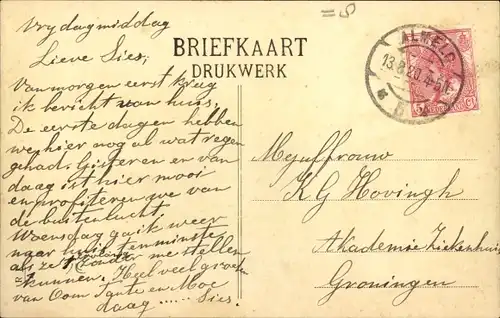 Vrydagmiddag
Lieve Sies,
Van morgen eerst kreeg
ik bericht van huis.
De eerste dagen hebben
we hier nog al wat regen
gehad. Gisteren en van
daag is t hier mooi
en profiteren we van
de buitenlucht.
Woensdag ga ik weer
naar huis tenminste
als ze t zonder me stellen
kunnen. Heel veel groeten
van Oom Tante en Moe
daag ...... Sies.
BRIEFKAART
DRUKWERK
ALMELO
13.8.20
5
Mejuffrouw
K G Hovingh
Akademie Ziekenhuis
Groningen